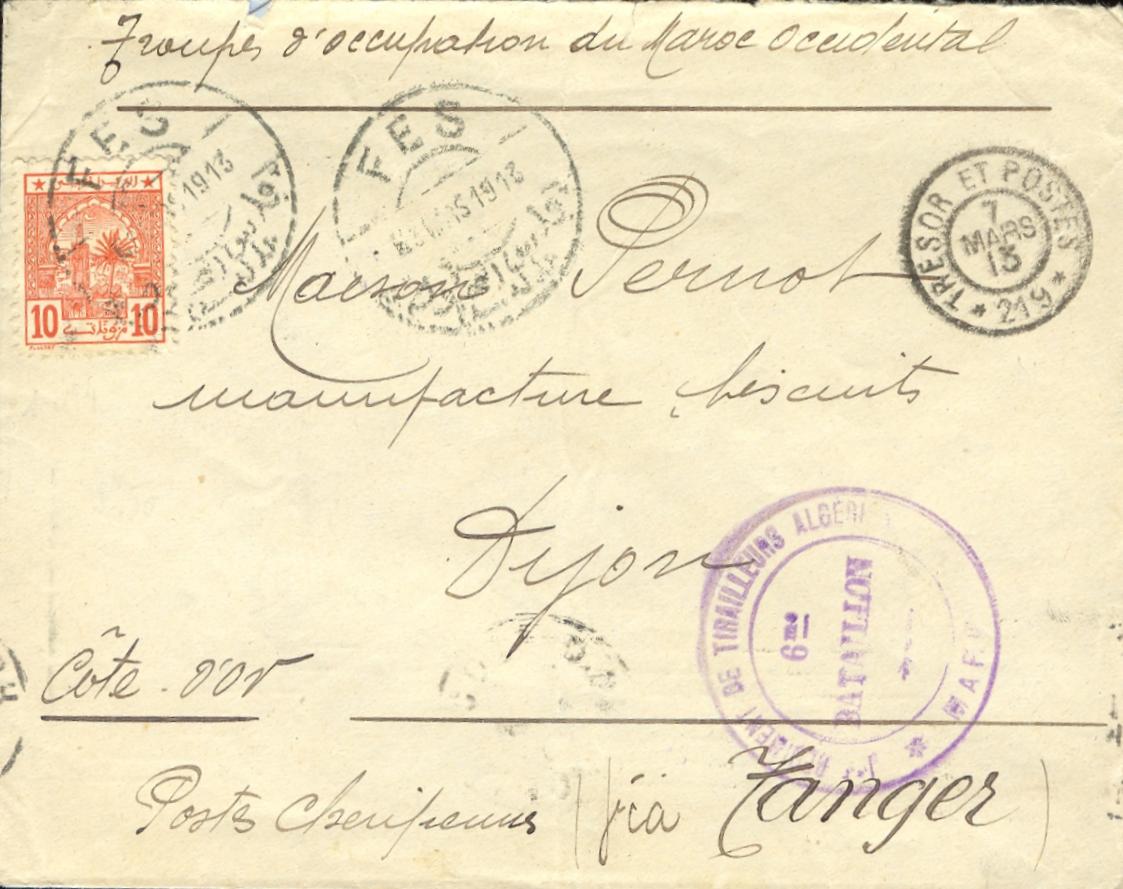 Troupes d'occupation du Maroc Occidental
FES
1913
FES
MARS 1913
TRESOR ET POSTES
7
MARS
13
* 219 *
10 10
Maison Pernot
manufacture biscuits
Dijon
DE TIRAILLEURS ALGÉRI
6me
BATAILLON
Côte d'Or
Postes cherifiennes (via Tanger)